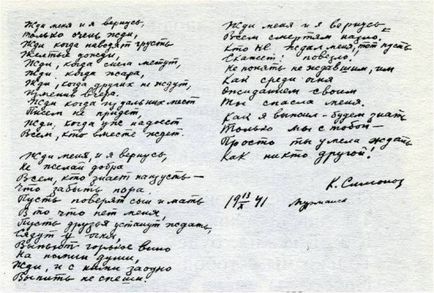 Жди меня и я вернусь,
Только очень жди,
Жди когда наводят грусть
Желтые дожди,
Жди, когда снега метут,
Жди, когда жара,
Жди, когда других не ждут,
Изменив вчера.
Жди когда из дальних мест
Писем не придет,
Жди, когда уж надоест
Всем, кто вместе ждет.
Жди меня, и я вернусь,
Не желай добра
Всем, кто знает наизусть
Что забыть пора.
Пусть поверят сын и мать
В то что нет меня,
Пусть друзья устанут ждать,
Сядут у огня,
Выпьют горькое вино
На помин души,
Жди, и с ними заодно
Выпить не спеши.
Жди меня и я вернусь
Всем смертям назло.
Кто не ждал меня, тот пусть
Скажет: повезло.
Не понять не ждавшим, им
Как среди огня
Ожиданием своим
Ты спасла меня.
Как я выжил - будем знать
Только мы с тобой -
Просто ты умела ждать
Как никто другой!
К. Симонов
19 13/X 41
Мурманск